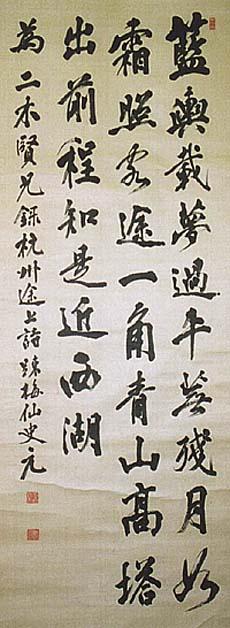 藍輿載夢過平蕪殘月如
霜照客途一角青山高塔
出前程知是近西湖
為二木賢兄錄杭州途上詩踈梅仙史元